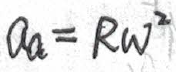 a_a = Rω²